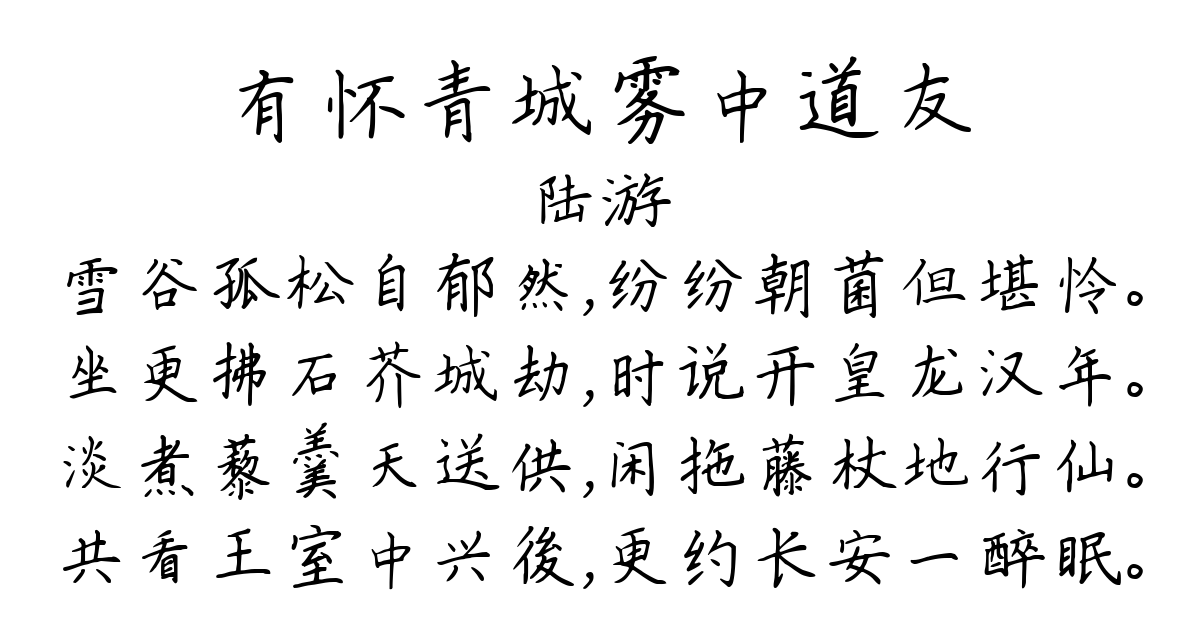 有怀青城雾中道友
陆游
雪谷孤松自郁然,纷纷朝菌但堪怜。
坐更拂石芥城劫,时说开皇龙汉年。
淡煮藜羹天送供,闲拖藤杖地行仙。
共看王室中兴後,更约长安一醉眠。